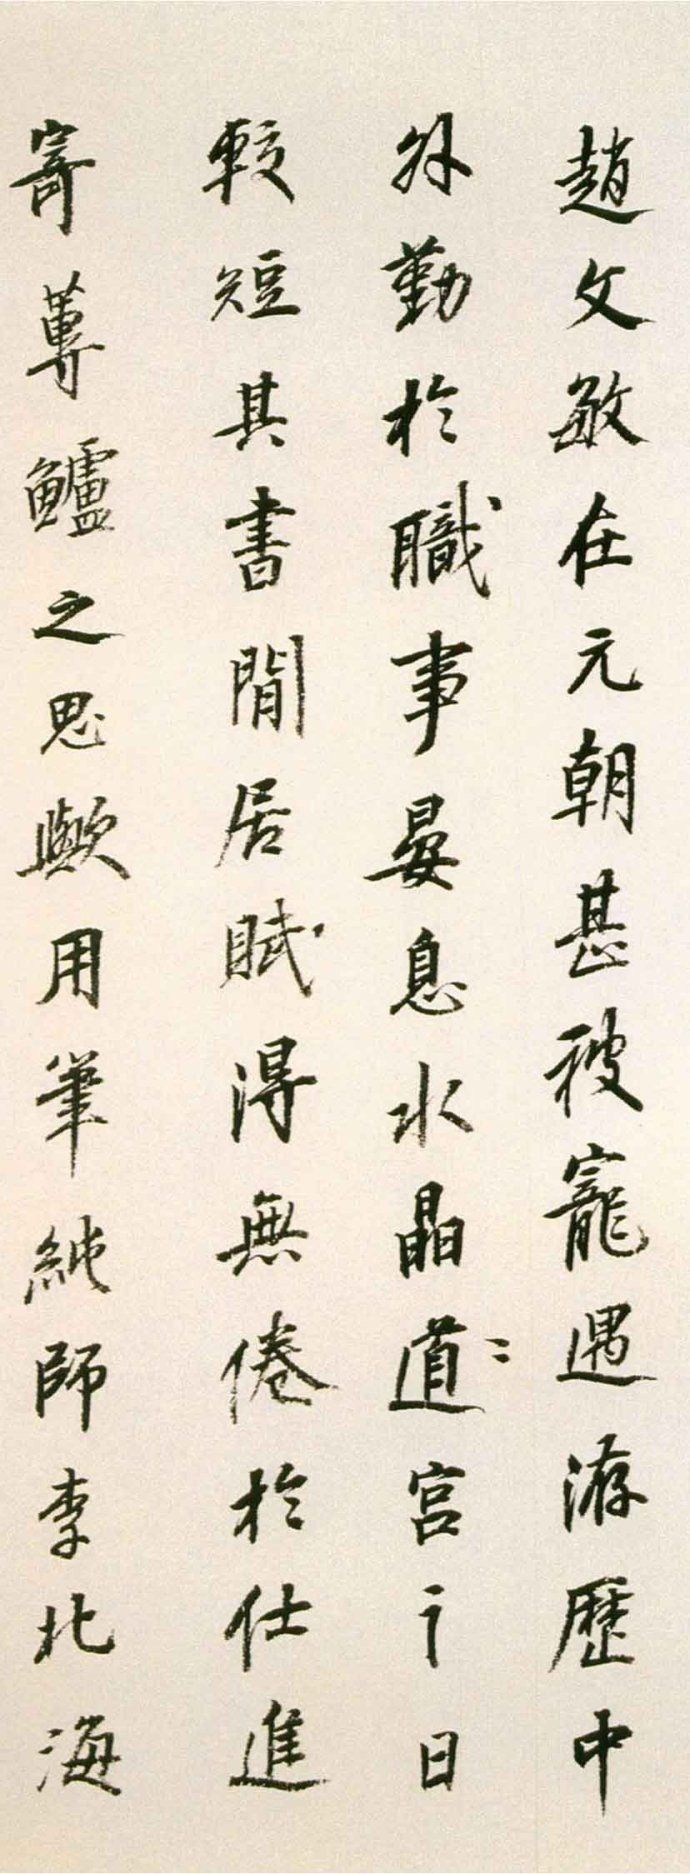 趙文敏在元朝甚被寵遇游歷中
外勤於職事晏息水晶道宮之日
較短其書閒居賦得無倦於仕進
寄蓴鱸之思歟用筆純師李北海